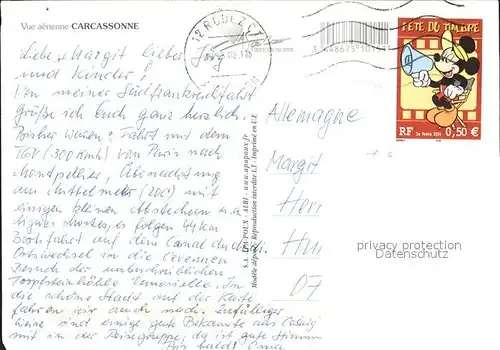 Vue aérienne CARCASSONNE
12 RODEZ
3 448675 1015
FÊTE DU TIMBRE
RF La Poste 2004 0,50 €
Liebe Margit, lieber Jörg
und Kinder!
Von meiner Südfrankreichfahrt
grüße ich Euch ganz herzlich.
Bisher waren: Fahrt mit dem
TGV (300 Kmh) von Paris nach
Montpellier, Übernachtung
am Mittelmeer (20C) mit
einigen kleinen Abstechern u.a.
Aigues Mortes, es folgen 44 km
Bootsfahrt auf dem Canal du Midi.
Ortswechsel in die Cevennen
Besuch der unbeschreiblichen
Tropfsteinhöhle. In
die schöne Stadt auf der Karte
fahren wir auch noch. Zufälliger
weise sind einige gute Bekannte aus
mit in der Reisegruppe, da ist gute Stimm
Bis bald! Oma
S.A. APA-POUX - ALBI - www.apapoux.fr
Modèle déposé - Reproduction interdite L.T - Imprimé en U.E
Allemagne
Margit
Herr
Hu
07
privacy protection
Datenschutz